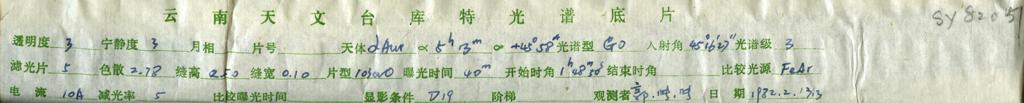 云南天文台库特光谱底片
SY 8205
透明度 3 宁静度 3 月相 片号 天体 αAur α 5h 3m +45°58' 光谱型 G0 入射角 45°6'27" 光谱级 3
滤光片 5 色散 2.78 缝高 0.50 缝宽 0.10 片型 103aO 曝光时间 40m 开始时角 1h48m30s 结束时角 比较光源 FeAr
电流 10A 减光率 5 比较曝光时间 显影条件 D19 阶梯 观测者 日期 1982.2.13